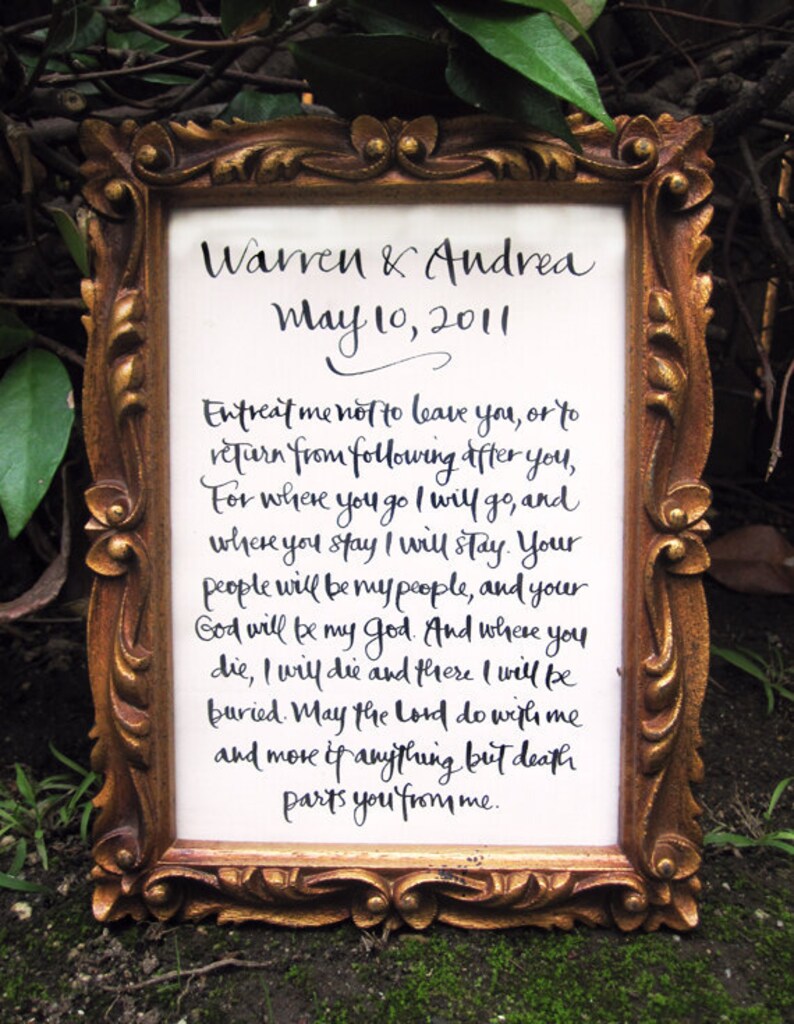 Warren & Andrea
May 10, 2011
Entreat me not to leave you, or to
return from following after you,
For where you go I will go, and
where you stay I will stay. Your
people will be my people, and your
God will be my God. And where you
die, I will die and there I will be
buried. May the Lord do with me
and more if anything but death
parts you from me.